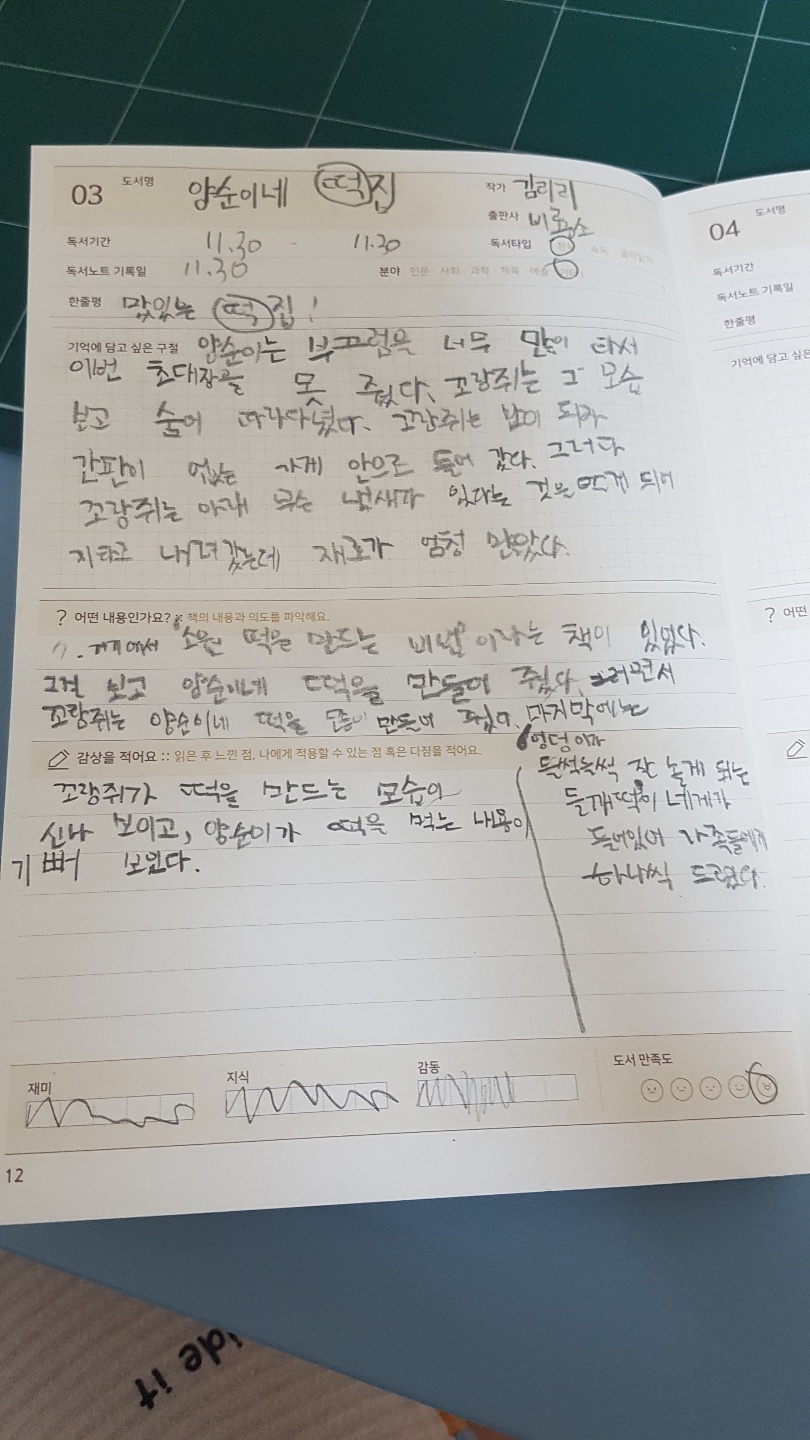 03 도서명 양순이네 떡집 작가 김리리
출판사 비룡소
독서기간 11.30 - 11.30 독서타입
독서노트 기록일 11.30 분야 인문 · 사회 · 과학 · 체육 · 예술
한줄평 맛있는 떡집!
기억에 담고 싶은 구절 양순이는 부끄럼을 너무 많이 타서
이번 초대장을 못 줬다. 꼬랑쥐는 그 모습
보고 숨어 따라다녔다. 꼬랑쥐는 밤이 되자
간판이 없는 가게 안으로 들어 갔다. 그러다
꼬랑쥐는 아래 무슨 냄새가 있다는 것을 알게 되어
내려갔는데 재료가 엄청 많았다.
? 어떤 내용인가요? :: 책의 내용과 의도를 파악해요.
거기에서 "소원 떡을 만드는 비법"이라는 책이 있었다.
그걸 보고 양순이네 떡을 만들어 줬다. 그러면서
꼬랑쥐는 양순이네 떡을 만들어 줬다. 마지막에는
감상을 적어요 :: 읽은 후 느낀 점, 나에게 적용할 수 있는 점 혹은 다짐을 적어요.
꼬랑쥐가 떡을 만드는 모습이
신나 보이고, 양순이가 떡을 먹는 내용이
기뻐 보였다.
엉덩이가
들썩들썩 잘 놀게 되는
들깨떡이 네개가
들어있어 가족들에게
하나씩 드렸다.
재미 지식 감동 도서 만족도
12
04 도서명
독서기간
독서노트 기록일
한줄평
기억에 담고 싶은
? 어떤
ide it